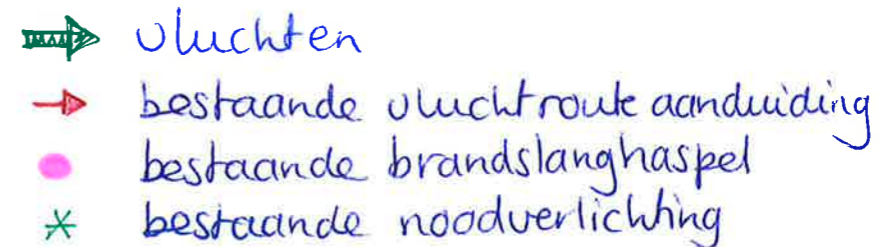 vluchten
bestaande vluchtroute aanduiding
bestaande brandslanghaspel
bestaande noodverlichting